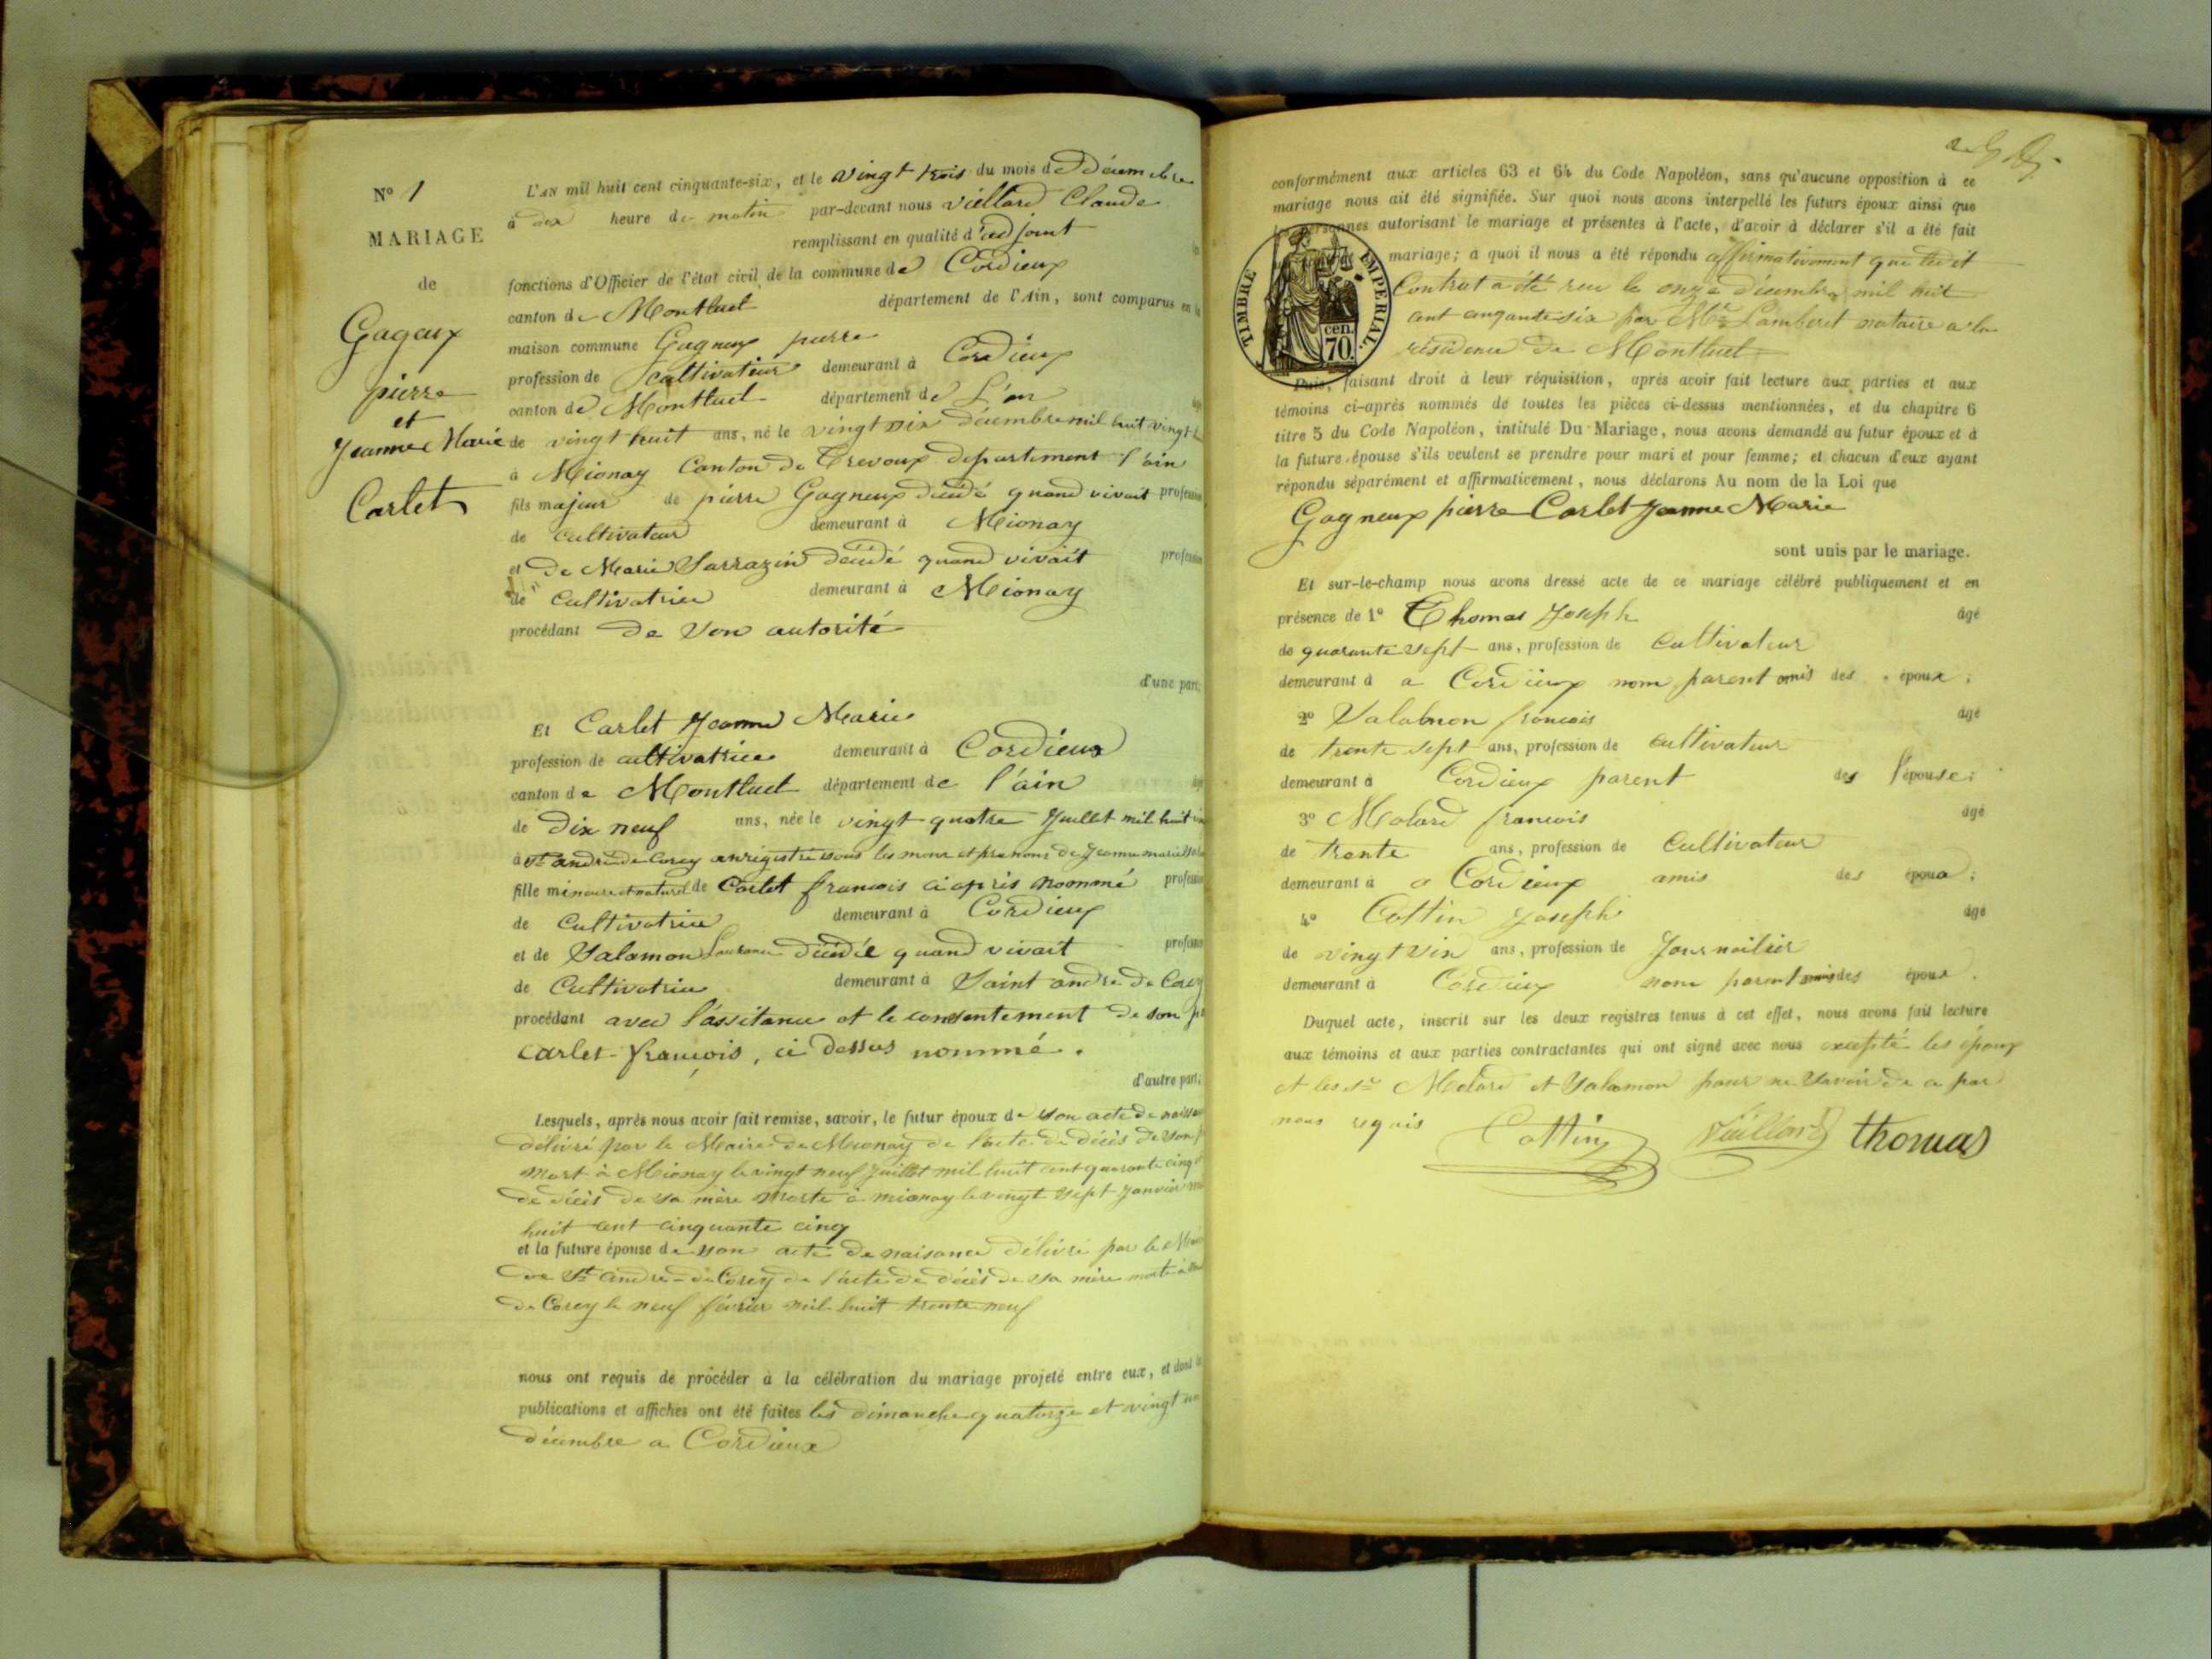 N° 1
MARIAGE
de
Gageux
pierre
et
Jeanne Marie
Carlet
L'AN mil huit cent cinquante-six, et le vingt trois du mois de Décembre
à dix heure de matin par-devant nous Viellard Claude
remplissant en qualité d'adjoint
fonctions d'Officier de l'état civil de la commune de Cordieux
canton de Montluel département de l'Ain, sont comparus en la
maison commune Gagneux pierre
profession de cultivateur demeurant à Cordieux
canton de Montluel département de L'ain
de vingt huit ans, né le vingt six décembre mil huit vingt
à Mionay Canton de Trevoux département l'ain
fils majeur de pierre Gagneux décédé quand vivait profession
de cultivateur demeurant à Mionay
et de Marie Sarrazin décédé quand vivait profession
de cultivatrice demeurant à Mionay
procédant de son autorité
d'une part;
Et Carlet Jeanne Marie
profession de cultivatrice demeurant à Cordieux
canton de Montluel département de l'ain
de Dix neuf ans, née le vingt quatre Juillet mil huit
à St andré de Corcy enrigistré sous les noms et prenoms de Jeanne marie
fille mineure et naturel de Carlet francois ci apris nommé profession
de Cultivatrice demeurant à Cordieux
et de Salamon décédée quand vivait profession
de Cultivatrice demeurant à Saint andré de Corcy
procédant avec l'assitance et le consentement de son
Carlet françois, ci dessus nommé.
d'autre part;
Lesquels, après nous avoir fait remise, savoir, le futur époux de son acte de naissance
délivré par le Maire de Mionay de l'acte de décès de son
mort à Mionay le vingt neuf Juillet mil huit cent quarante cinq
de décès de sa mère morte à mionay le vingt sept Janvier
huit cent cinquante cinq
et la future épouse de son acte de naisance délivré par le
de St andré de Corcy de l'acte de décès de sa mère morte à
de Corcy le neuf février mil huit trente neuf
nous ont requis de procéder à la célébration du mariage projeté entre eux, et dont les
publications et affiches ont été faites les dimanche quatorze et vingt un
décembre a Cordieux
conformément aux articles 63 et 64 du Code Napoléon, sans qu'aucune opposition à ce
mariage nous ait été signifiée. Sur quoi nous avons interpellé les futurs époux ainsi que
les personnes autorisant le mariage et présentes à l'acte, d'avoir à déclarer s'il a été fait
mariage; à quoi il nous a été répondu affirmativement que le dit
Contrat a été reçu le onze décembre mil huit
cent cinquante six par Me Lamberet notaire a la
résidence de Montluel
TIMBRE IMPERIAL
70 cen.
Puis, faisant droit à leur réquisition, après avoir fait lecture aux parties et aux
témoins ci-après nommés de toutes les pièces ci-dessus mentionnées, et du chapitre 6
titre 5 du Code Napoléon, intitulé Du Mariage, nous avons demandé au futur époux et à
la future épouse s'ils veulent se prendre pour mari et pour femme; et chacun d'eux ayant
répondu séparément et affirmativement, nous déclarons Au nom de la Loi que
Gagneux pierre Carlet Jeanne Marie
sont unis par le mariage.
Et sur-le-champ nous avons dressé acte de ce mariage célébré publiquement et en
présence de 1° Thomas Joseph âgé
de quarante sept ans, profession de Cultivateur
demeurant à a Cordieux nom parent amis des époux;
2° francois âgé
de trente sept ans, profession de Cultivateur
demeurant à Cordieux parent des l'épouse;
3° Molard francois âgé
de trente ans, profession de Cultivateur
demeurant à a Cordieux amis des époux;
4° Cottin Joseph âgé
de vingt ans, profession de Journailier
demeurant à Cordieux nom parent des époux.
Duquel acte, inscrit sur les deux registres tenus à cet effet, nous avons fait lecture
aux témoins et aux parties contractantes qui ont signé avec nous excepté les époux
et les Srs Molard et Salamon pour ne savoir de ce par
nous requis Cottin Viellard thomas